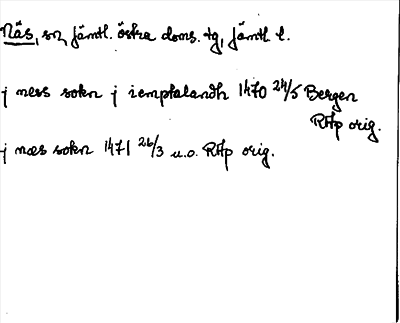 Näs, sn, jämtl. östra doms. tg, jämtl l.
j ness sokn j iemptalandh 1470 24/5 Bergen
RAp orig.
j næs sokn 1471 26/3 u.o. RAp orig.